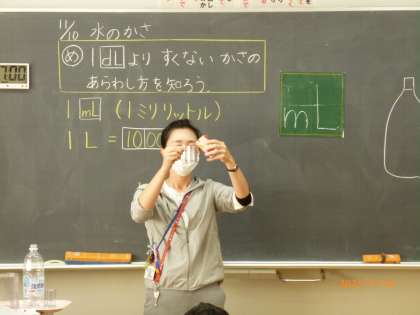 11/10 水のかさ
め 1dLより すくない かさの
あらわし方を知ろう.
1mL (1ミリリットル)
1L = 100
mL
7:00